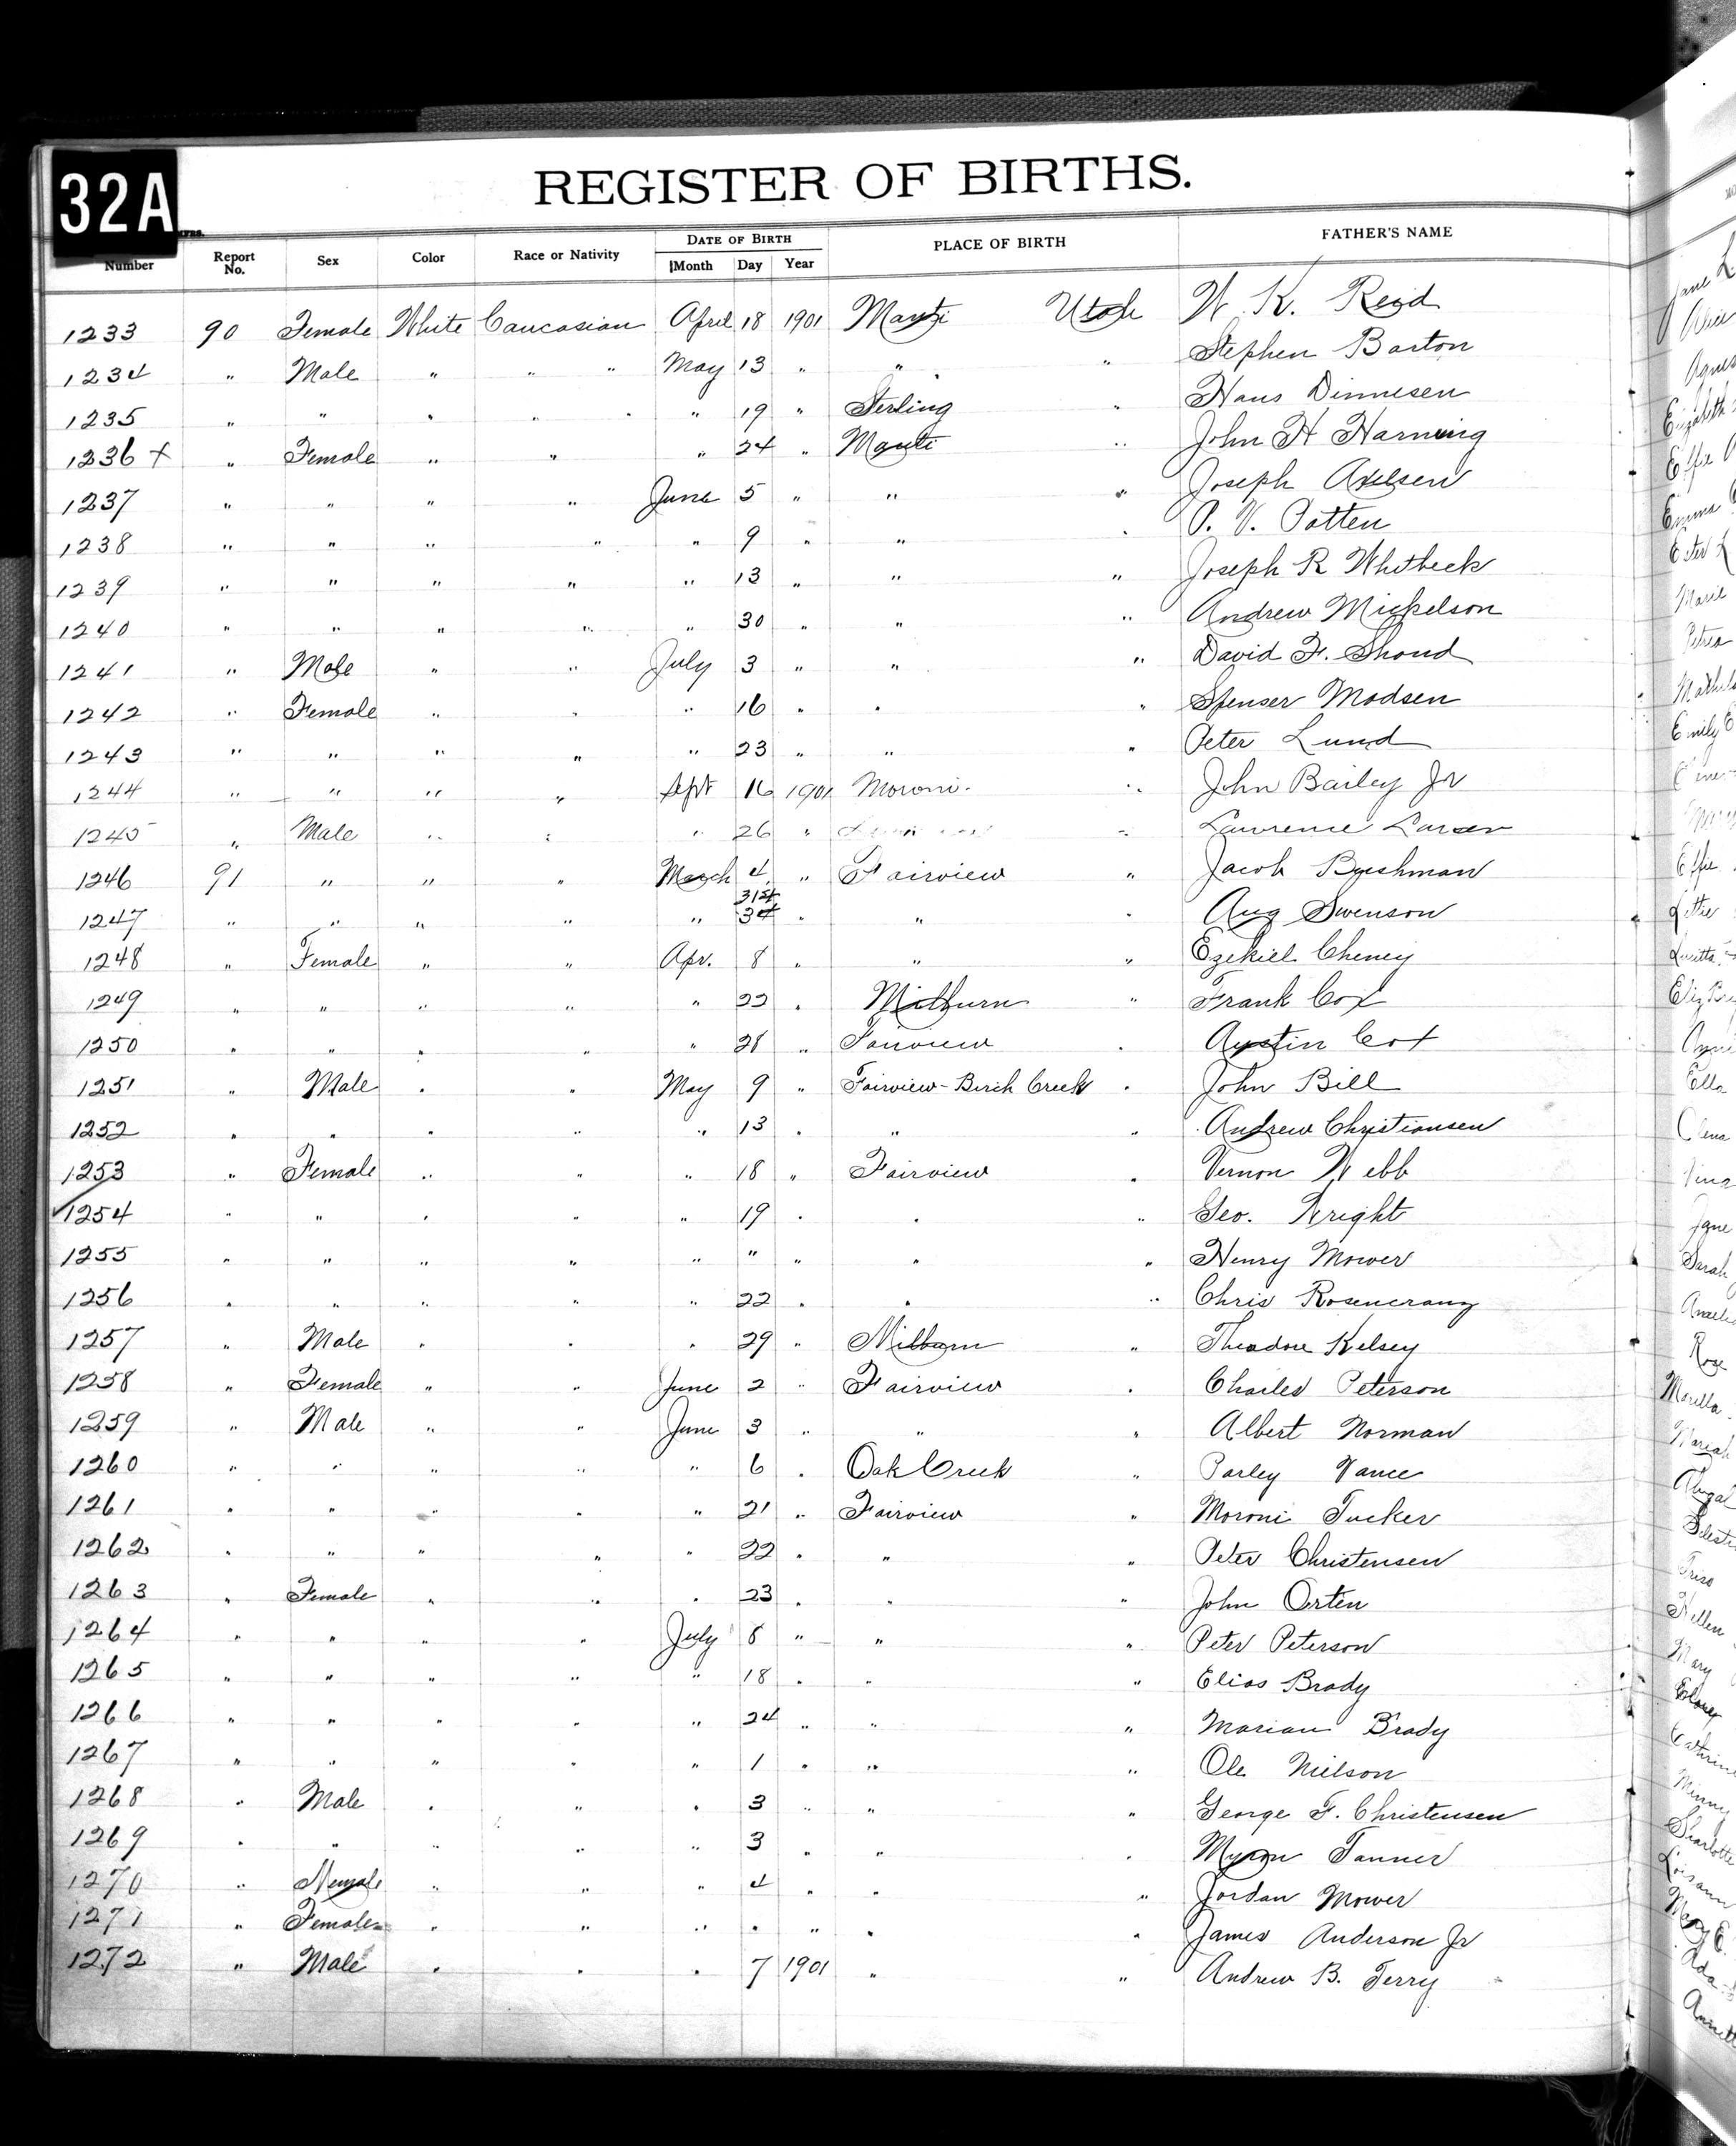 32A
REGISTER OF BIRTHS.
Number Report No. Sex Color Race or Nativity DATE OF BIRTH Month Day Year PLACE OF BIRTH FATHER'S NAME
1233 90 Female White Caucasian April 18 1901 Manti Utah W. K. Reid
1234 " Male " " " May 13 " " " Stephen Barton
1235 " " " " " " 19 " Sterling " Hans Dinnesen
1236 + " Female " " " 24 " Manti " John H Harning
1237 " " " " June 5 " " " Joseph Axelsen
1238 " " " " " 9 " " " P. V. Patten
1239 " " " " " 13 " " " Joseph R Whitbeck
1240 " " " " " 30 " " " Andrew Mickelson
1241 " Male " " July 3 " " " David F. Shand
1242 " Female " " " 16 " " " Spenser Madsen
1243 " " " " " 23 " " " Peter Lund
1244 " " " " Sept 16 1901 Moroni. " John Bailey Jr
1245 " Male " " " 26 " " Lawrence Larsen
1246 91 " " " March 4 " Fairview " Jacob Bushman
1247 " " " " " 31st " " " Aug Swenson
1248 " Female " " Apr. 8 " " " Ezekiel Cheney
1249 " " " " " 22 " Milburn " Frank Cox
1250 " " " " " 28 " Fairview " Austin Cox
1251 " Male " " May 9 " Fairview - Birch Creek " John Bill
1252 " " " " " 13 " " " Andrew Christiansen
1253 " Female " " " 18 " Fairview " Vernon Webb
1254 " " " " " 19 " " " Geo. Wright
1255 " " " " " " " " " Henry Mower
1256 " " " " " 22 " " " Chris Rosencranz
1257 " Male " " " 29 " Milburn " Theodore Kelsey
1258 " Female " " June 2 " Fairview " Charles Peterson
1259 " Male " " June 3 " " " Albert Norman
1260 " " " " " 6 " Oak Creek " Parley Vance
1261 " " " " " 21 " Fairview " Moroni Tucker
1262 " " " " " 22 " " " Peter Christensen
1263 " Female " " " 23 " " " John Orten
1264 " " " " July 8 " " " Peter Peterson
1265 " " " " " 18 " " " Elias Brady
1266 " " " " " 24 " " " Marian Brady
1267 " " " " " 1 " " " Ole Nielson
1268 " Male " " " 3 " " " George F. Christensen
1269 " " " " " 3 " " " Myron Tanner
1270 " " " " 4 " " " Jordan Mower
1271 " Female " " " " " " " James Anderson Jr
1272 " Male " " " 7 1901 " " Andrew B. Terry